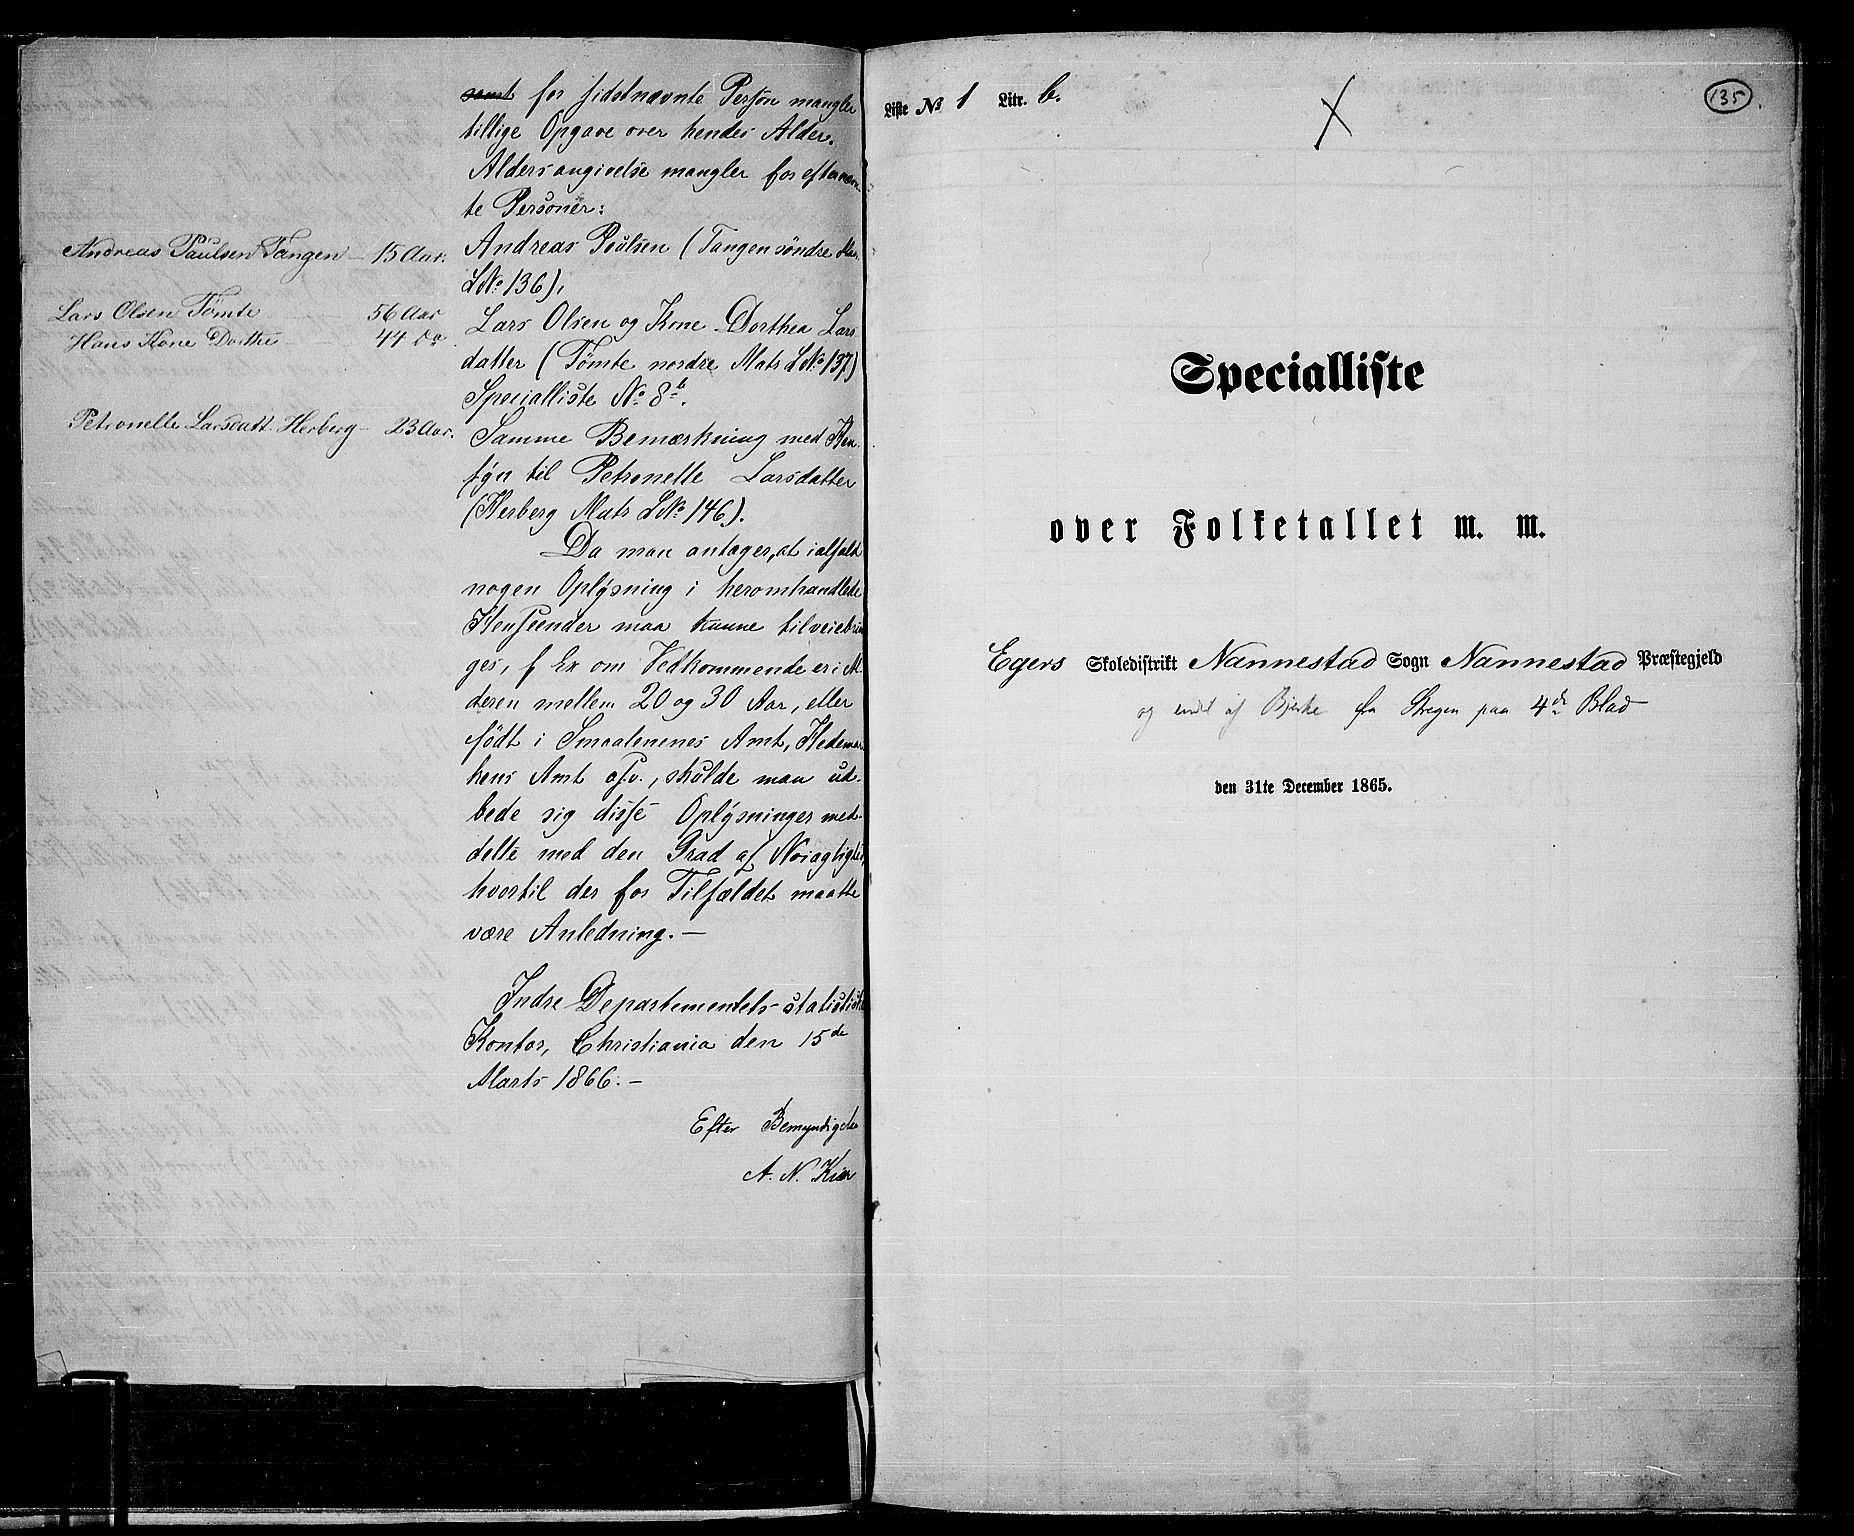 samt for sidstnævnte Person mangler
tillige Opgave over hendes Alder.
Aldersangivelse mangler for efternævn
te Personer:
Andreas Paulsen Tangen — 15 Aar.
Andreas Poulsen (Tangen söndre Mat.
LNo 136),
Lars Olsen Tømte 56 Aar
Hans Kone Dorthe 44 do
Lars Olsen og Kone Dorthea Lars
datter (Tømte nordre Mats LNo 137)
Specialliste No 8b.
Petronelle Larsdatt. Herberg — 23 Aar.
Samme Bemærkning med Hen
syn til Petronelle Larsdatter
(Herberg Mats LNo 146).
Da man antager, at ialfald
nogen Oplysning i heromhandlede
Henseender maa kunne tilveiebrin
ges, f Ex om Vedkommende er i Al
deren mellem 20 og 30 Aar, eller
født i Smaalenenes Amt, Hedemar
kens Amt osv., skulde man ud-
bede sig disse Oplysninger med-
delte med den Grad af Nøiagtighed,
hvortil der for Tilfældet maatte
være Anledning. —
Indre Departementets statistiske
Kontor, Christiania den 15de
Marts 1866. —
Efter Bemyndigelse
A. N. Kiær
Liste No 1 Litr. b.
135
Specialliste
over Folketallet m. m.
Egers Skoledistrikt Nannestad Sogn Nannestad Præstegjeld
og endel af Bjerke fra Stregen paa 4de Blad
den 31te December 1865.